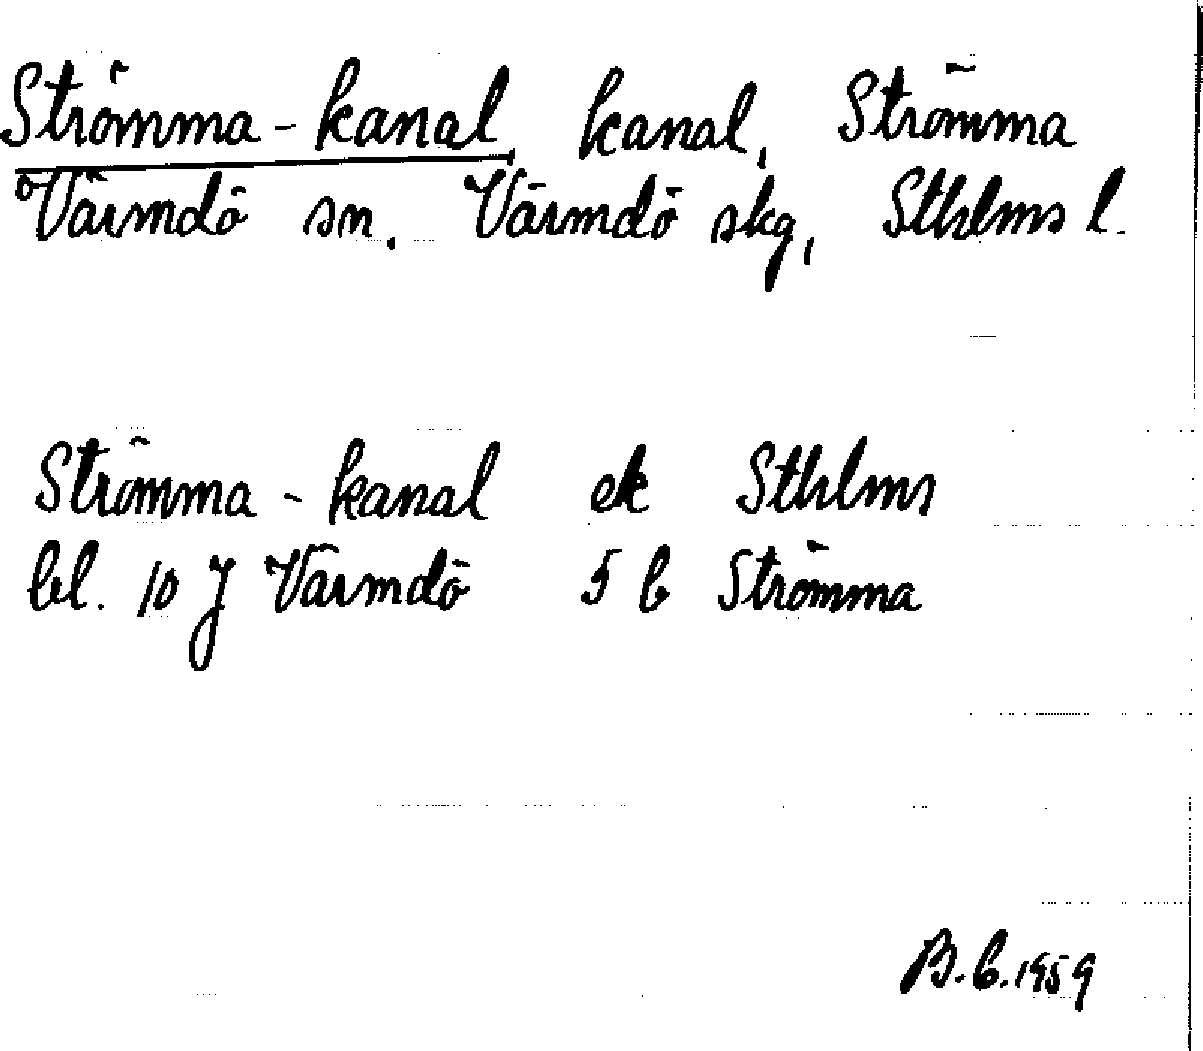 Strömma-kanal, kanal, Strömma
Värmdö sn. Värmdö skg, Sthlms l.
Strömma-kanal ek Sthlms
bl. 10 J Värmdö 5 b Strömma
B.C. 1959